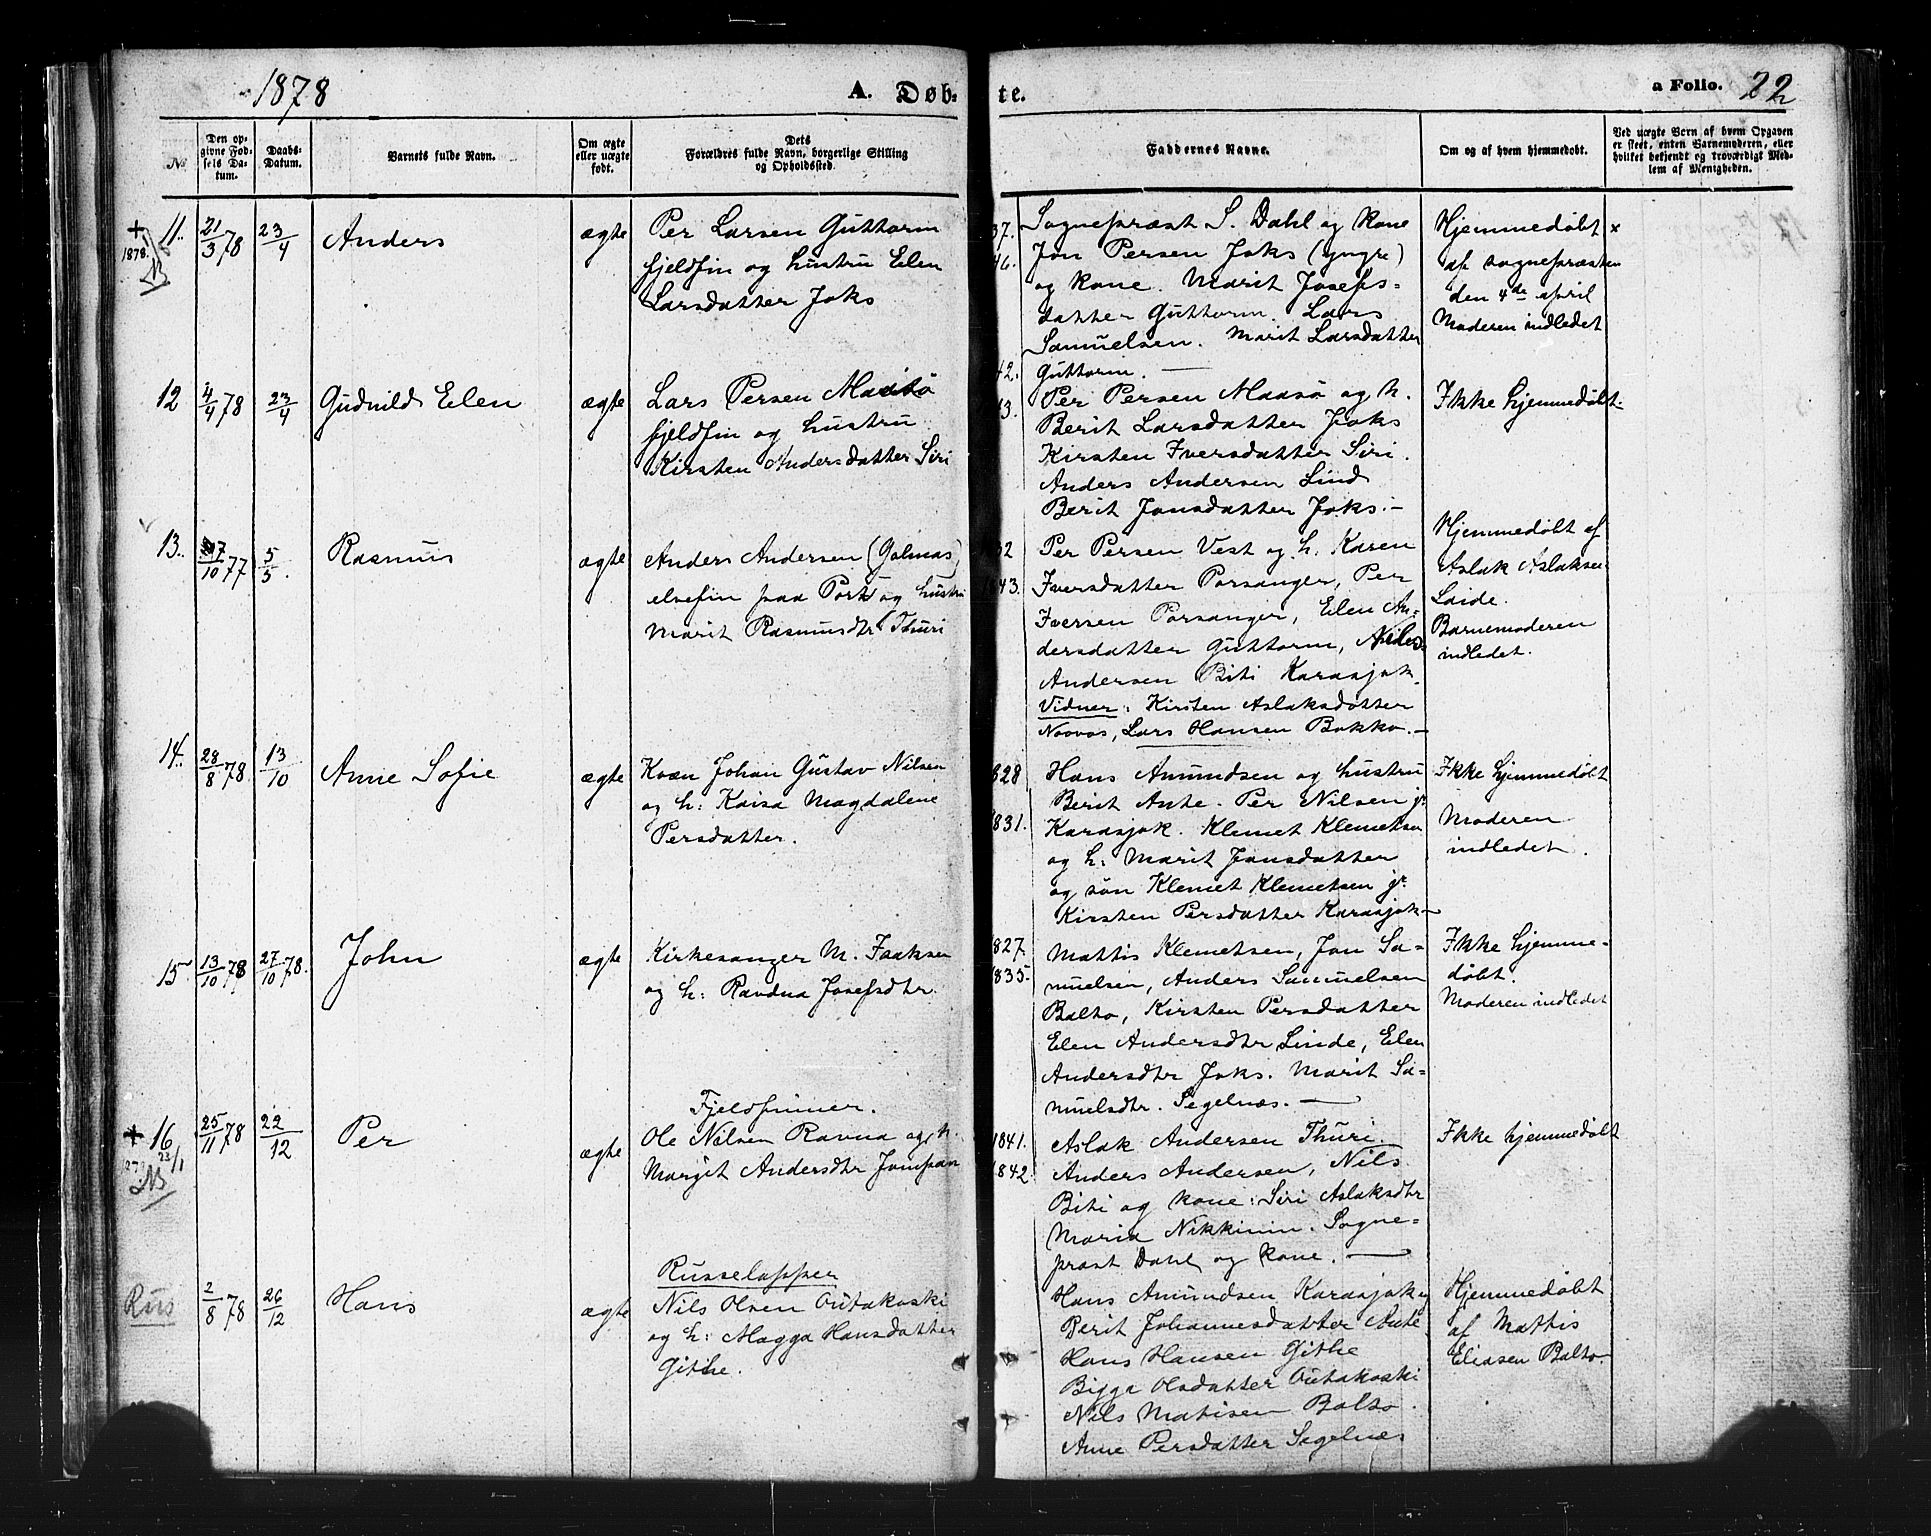 1878
A. Døb-
te.
a Folio. 22
№
Den op-
givne Fød-
sels Da-
tum.
Daabs-
Datum.
Barnets fulde Navn.
Om ægte
eller uægte
født.
Dets
Forældres fulde Navn, borgerlige Stilling
og Opholdssted.
Faddernes Navne.
Om og af hvem hjemmedøbt.
Ved uægte Børn af hvem Opgaven
er skeet, enten Barnemoderen, eller
hvilket bekjendt og troværdigt Med-
lem af Menigheden.
+
1878
11.
21/3 78
23/4
Anders
ægte
Per Larsen Guttorm
fjeldfin og hustru Elen
Larsdatter Joks
37.
46.
42.
Sognepræst S. Dahl og kone
Jon Persen Joks (yngre)
og kone. Marit Josefs-
datter Guttorm. Lars
Samuelsen. Marit Larsdatter
Guttorm.
Hjemmedøbt ×
af sognepræsten
den 4de april
Moderen indledet
12
4/4 78
23/4
Gudnild Elen
ægte
Lars Persen Maasø
fjeldfin og hustru
Kirsten Andersdatter Siri
13.
Per Persen Maasø og h.
Berit Larsdatter Joks
Kirsten Iversdatter Siri.
Anders Andersen Lind
Berit Jonsdatter Joks.-
Ikke hjemmedøbt.
13.
/10 77
5/5.
Rasmus
ægte
Anders Andersen (Galmas)
elvefin paa Port og hustru
Marit Rasmusdtr Thuri
32
1843.
Per Persen Vest og h. Karen
Iversdatter Porsanger, Per
Iversen Porsanger, Elen An-
dersdatter Guttorm,
Andersen Biti Karasjok.
Vidner: Kirsten Aslaksdatter
Noovas, Lars Hansen Bokko.-
Hjemmedøbt af
Aslak Aslaksen
Laide.
Barnemoderen
indledet.
14.
28/8 78.
13/10
Anne Sofie
ægte
Kvæn Johan Gustav Nilsen
og h: Kaisa Magdalene
Persdatter.
828
831.
Hans Amundsen og hustru
Berit Ante. Per Nilsen jr
Karasjok. Klemet Klemetsen
og h: Marit Jonsdatter
og søn Klemet Klemetsen jr.
Kirsten Persdatter Karasjok-
Ikke hjemmedøbt
Moderen
indledet.
15
13/10 78
27/10 78.
John
ægte
Kirkesanger M. Isaksen
og h: Ravdna Josefsdtr.
827
835.
Mattis Klemetsen, Jon Sa-
muelsen, Anders Samuelsen
Balto, Kirsten Persdatter
Elen Andersdtr Linde, Elen
Andersdtr Joks. Marit Sa-
muelsdtr. Segelnæs. -
Ikke hjemme-
døbt.
Moderen indledet
+
16
23/1
25/11 78
22/12
Per
ægte
Fjeldfinner.
Ole Nilsen Ravna og h.
Margit Andersdtr
1841.
1842.
Aslak Andersen Thuri.
Anders Andersen, Nils
Biti og kone: Siri Aslaksdtr
Maria Nikkinin. Sogne-
præst Dahl og kone. -
Ikke hjemmedøbt
Rus
2/8 78
26/12
Hans
ægte
Russelapper
Nils Olsen Outakoski
og h: Magga Hansdatter
Githe.
Hans Amundsen Karasjok og
Berit Johannesdatter Ante
Hans Hansen Githe
Bigga Olsdatter Outakoski
Nils Matisen Balto.
Anne Persdatter Segelnæs
Hjemmedøbt
af Mattis
Eliasen Balto.